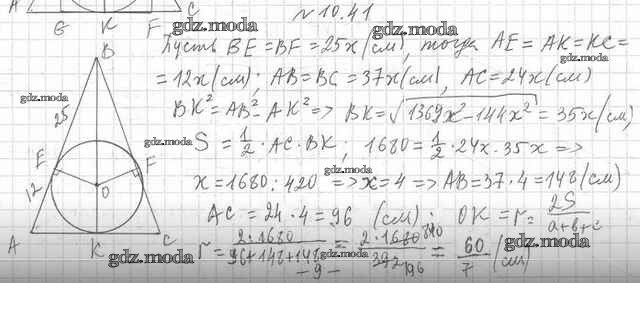 A G K F C
N 10.41
gdz.moda gdz.moda
Пусть BE = BF = 25x (см), тогда AE = AK = KC =
gdz.moda
= 12x (см); AB = BC = 37x (см), AC = 24x (см)
gdz.moda
BK² = AB² - AK² => BK = √1369x² - 144x² = 35x (см)
gdz.moda
S = 1/2 · AC · BK; 1680 = 1/2 · 24x · 35x =>
gdz.moda
x = 1680 : 420 => x = 4 => AB = 37 · 4 = 148 (см)
AC = 24 · 4 = 96 (см). OK = r = 2S/a+b+c
gdz.moda
r = 2·1680/96+148+148 = 2·1680/392 = 60/7 (см)
gdz.moda gdz.moda
840
196
- 9 -
B
25
E F
12
O
A K C
gdz.moda